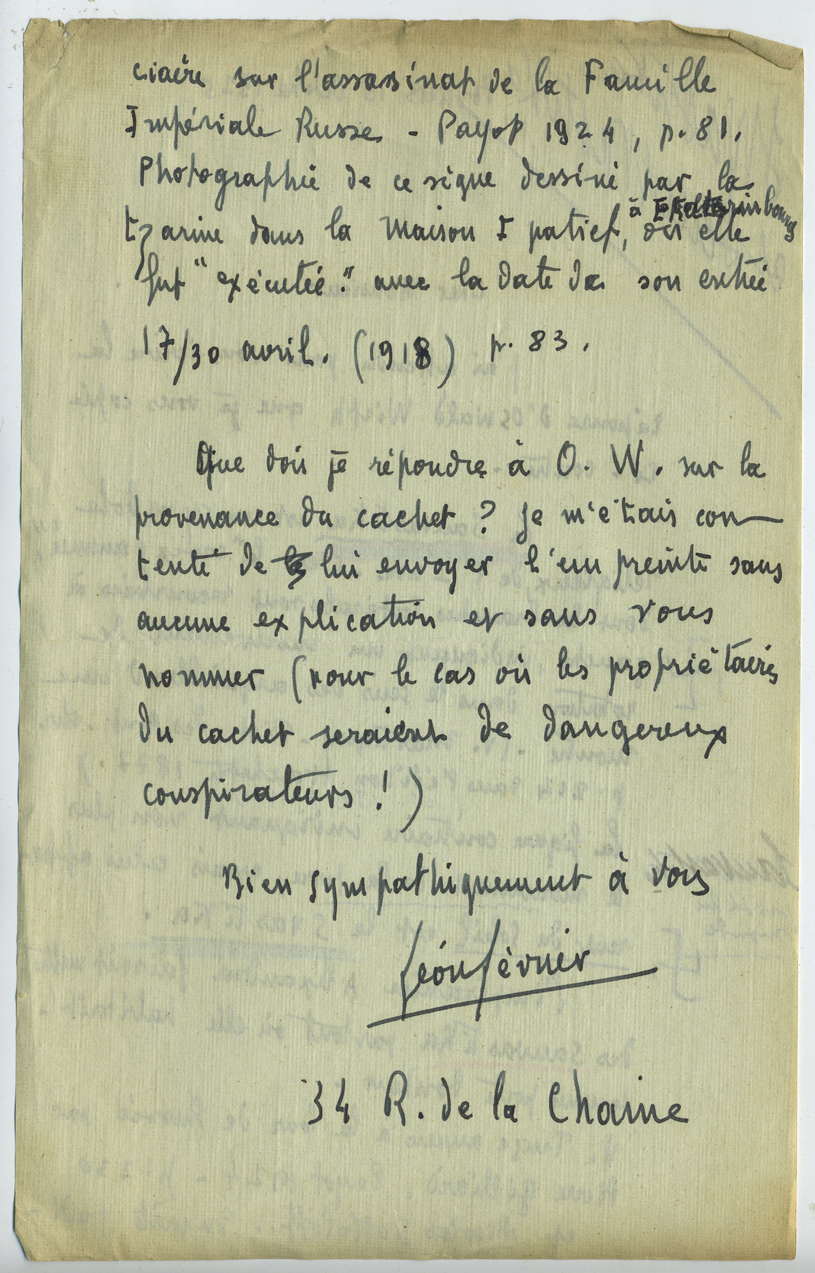 ciaire sur l'assassinat de la Famille
Impériale Russe - Payot 1924, p. 81.
Photographie de ce signe dessiné par la
à Ekaterinbourg
tzarine dans la Maison Ipatief, où elle
fut "exécutée." avec la date de son entrée
17/30 avril. (1918) p. 83.
Que dois je répondre à O. W. sur la
provenance du cachet ? Je m'étais con-
tenté de lui envoyer l'empreinte sans
aucune explication et sans vous
nommer (pour le cas où les propriétaires
du cachet seraient de dangereux
conspirateurs !)
Bien sympathiquement à vous
Léon Février
34 R. de la Chaine